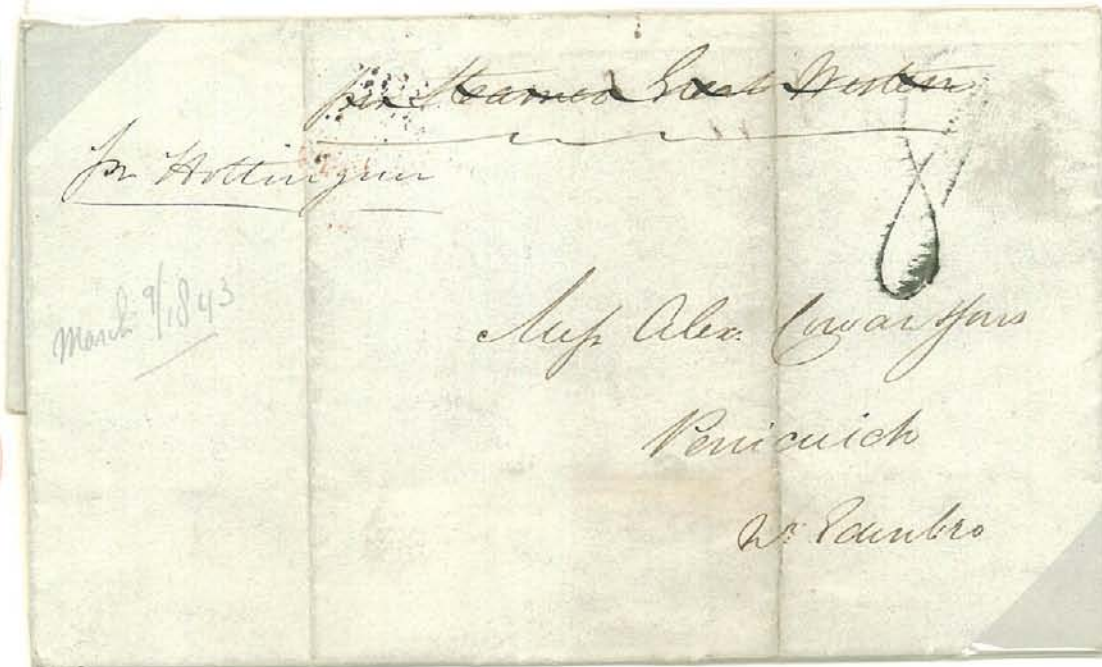 per Steamer Great Western
pr Hottinguer
March 9/1843
8
Messrs Alex. Cowan & Sons
Penicuich
Nr Edinbro